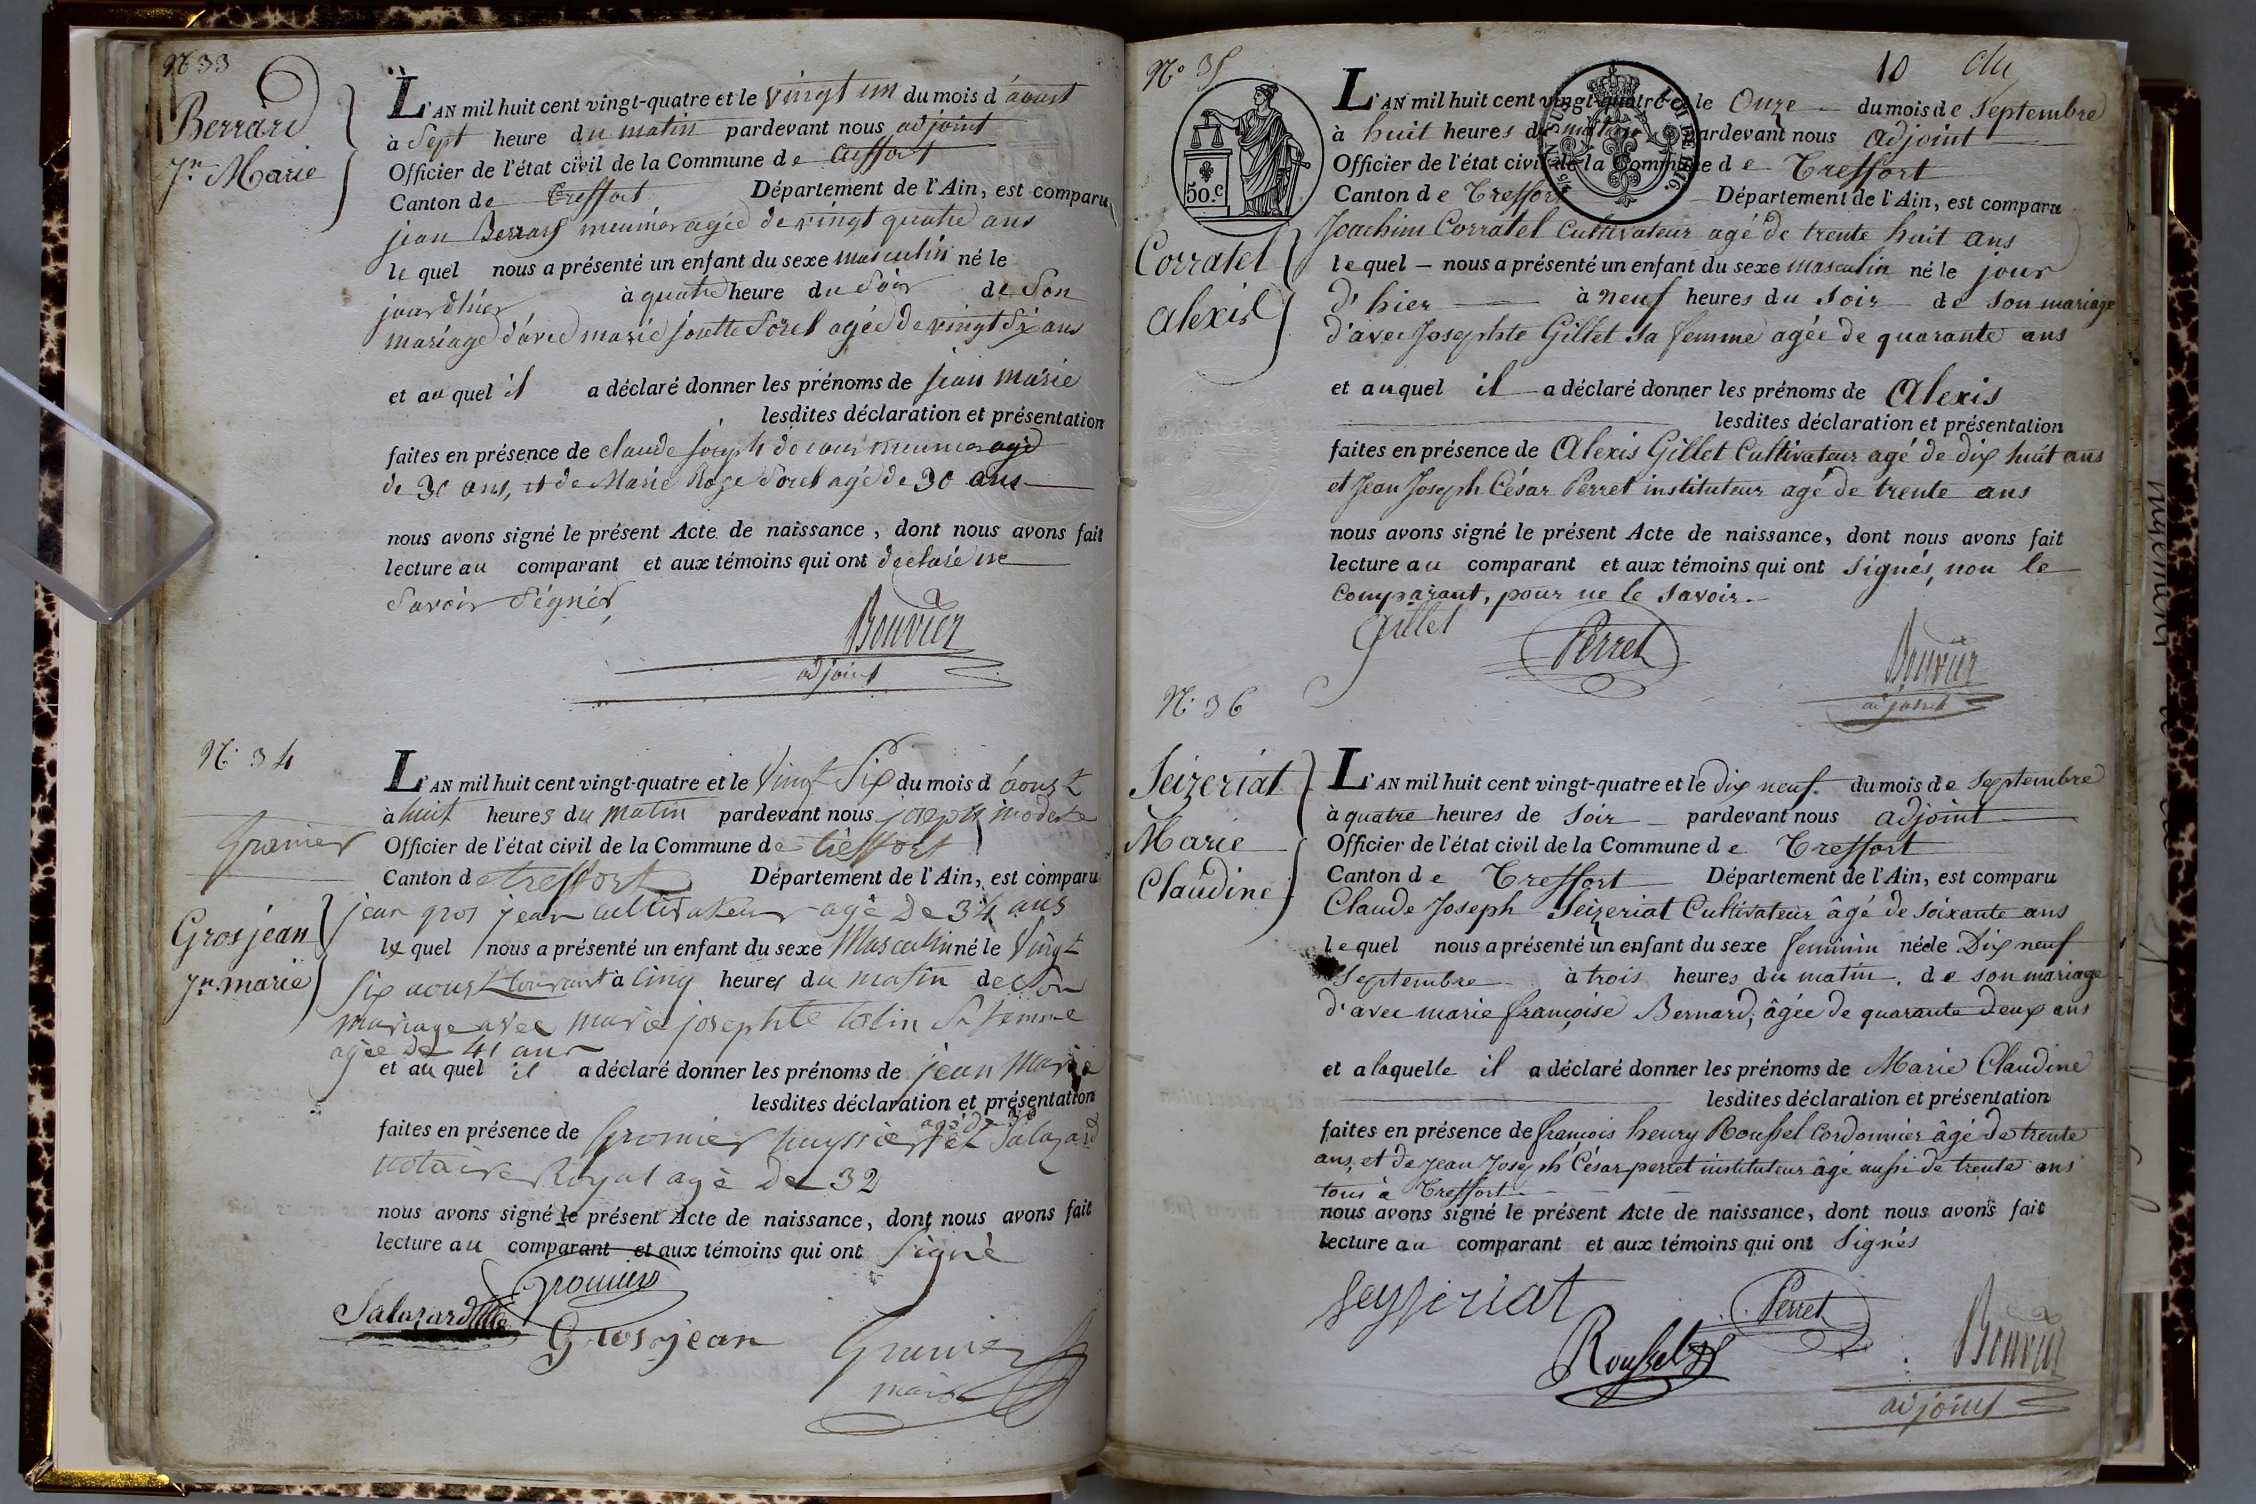 N° 33
Berrard
Jn Marie
L'AN mil huit cent vingt-quatre et le vingt un du mois d'aoust
à Sept heure du matin pardevant nous adjoint
Officier de l'état civil de la Commune de
Canton de Treffort Département de l'Ain, est comparu
jean Berrard meunier agée de vingt quatre ans
le quel nous a présenté un enfant du sexe masculin né le
jour d'hier à quatre heure du Soir de Son
mariage d'avec marie josette Sorel agée de vingt Six ans
et au quel il a déclaré donner les prénoms de jean marie
lesdites déclaration et présentation
faites en présence de claude joseph meunier agé
de 30 ans, et de Marie Roze Sorel agé de 30 ans
nous avons signé le présent Acte de naissance, dont nous avons fait
lecture au comparant et aux témoins qui ont declaré ne
Savoir Signer,
Bouvier
adjoint
N° 34
Gromier
Grosjean
Jn marie
L'AN mil huit cent vingt-quatre et le Vingt Six du mois d'aoust
à huit heures du matin pardevant nous joseph modeste
Officier de l'état civil de la Commune de treffort
Canton de treffort Département de l'Ain, est comparu
jean gros jean cultivateur agé De 34 ans
le quel nous a présenté un enfant du sexe Masculin né le Vingt
Six aoust Courant à Cinq heures du matin de Son
mariage avec marie josephte Colin Sa femme
agée De 41 ans
et au quel il a déclaré donner les prénoms de jean Marie
lesdites déclaration et présentation
agé de 30
faites en présence de Gromier huyssier et Salazard
notaire Royal agé De 32
nous avons signé le présent Acte de naissance, dont nous avons fait
lecture au comparant et aux témoins qui ont Signé
Gromier
Salazard
Grosjean
Gromier
maire
N° 35
10
50.c
Corratel
Alexis
L'AN mil huit cent vingt-quatre et le Onze du mois de Septembre
à huit heures du matin pardevant nous adjoint
Officier de l'état civil de la Commune de Treffort
Canton de Treffort Département de l'Ain, est comparu
Joachim Corratel Cultivateur agé de trente huit ans
le quel nous a présenté un enfant du sexe masculin né le jour
d'hier à neuf heures du Soir de son mariage
d'avec Josephte Gillet sa femme agée de quarante ans
et auquel il a déclaré donner les prénoms de Alexis
lesdites déclaration et présentation
faites en présence de Alexis Gillet Cultivateur agé de dix huit ans
et Jean Joseph César Perret instituteur agé de trente ans
nous avons signé le présent Acte de naissance, dont nous avons fait
lecture au comparant et aux témoins qui ont Signés, non le
Comparant, pour ne le Savoir.
Gillet
Perret
Bouvier
adjoint
N° 36
Seizeriat
Marie
Claudine
L'AN mil huit cent vingt-quatre et le dix neuf du mois de Septembre
à quatre heures de Soir pardevant nous adjoint
Officier de l'état civil de la Commune de Treffort
Canton de Treffort Département de l'Ain, est comparu
Claude Joseph Seizeriat Cultivateur âgé de Soixante ans
le quel nous a présenté un enfant du sexe feminin née le Dix neuf
Septembre à trois heures du matin, de son mariage
d'avec marie françoise Bernard, âgée de quarante deux ans
et a laquelle il a déclaré donner les prénoms de Marie Claudine
lesdites déclaration et présentation
faites en présence de françois henry Roussel Cordonnier âgé de trente
ans, et de Jean Joseph César perret instituteur âgé aussi de trente ans
tous à Treffort
nous avons signé le présent Acte de naissance, dont nous avons fait
lecture au comparant et aux témoins qui ont Signés
Seyseriat
Perret
Roussel
Bouvier
adjoint